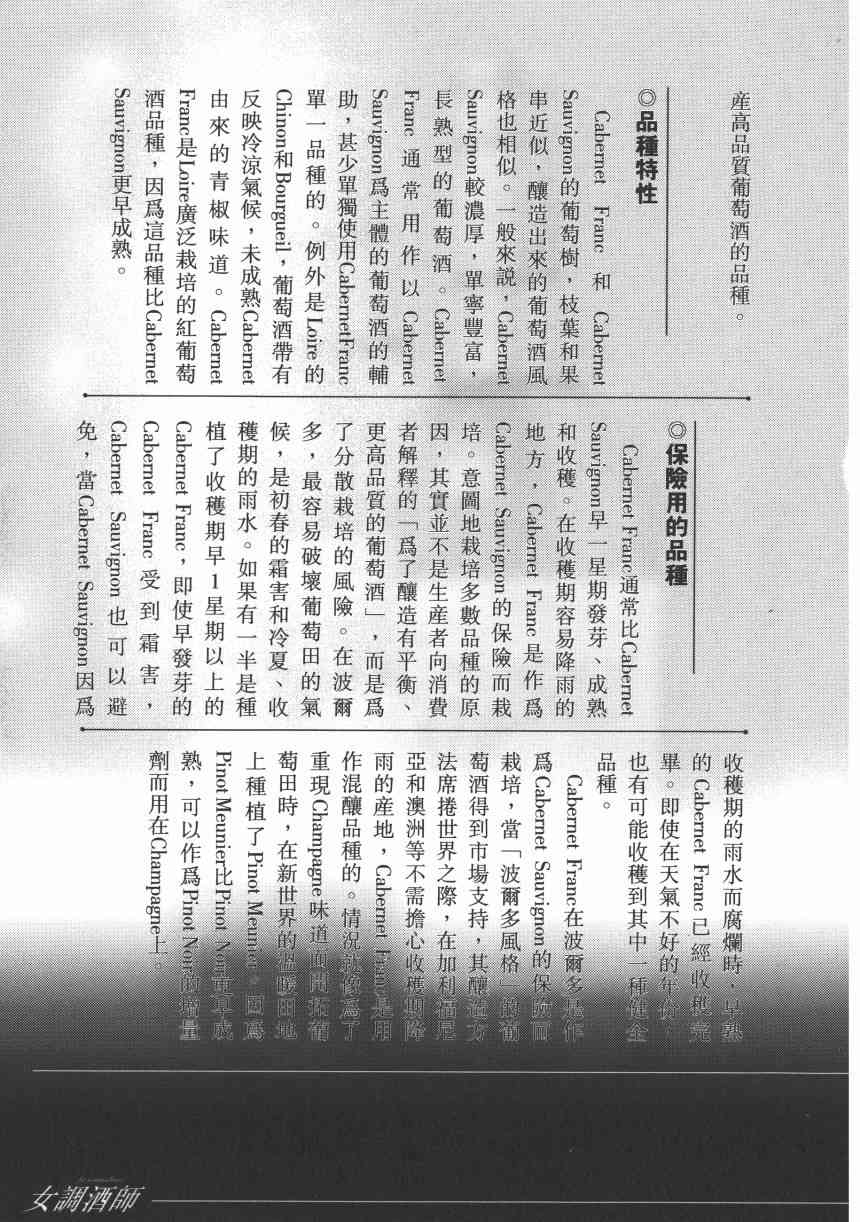 産高品質葡萄酒的品種。
◎品種特性
Cabernet Franc 和 Cabernet
Sauvignon的葡萄樹，枝葉和果
串近似，釀造出來的葡萄酒風
格也相似。一般來説，Cabernet
Sauvignon較濃厚，單寧豐富，
長熟型的葡萄酒。Cabernet
Franc 通常用作以 Cabernet
Sauvignon爲主體的葡萄酒的輔
助，甚少單獨使用CabernetFranc
單一品種的。例外是Loire的
Chinon和Bourgueil，葡萄酒帶有
反映冷涼氣候，未成熟Cabernet
由來的青椒味道。Cabernet
Franc是Loire廣泛栽培的紅葡萄
酒品種，因爲這品種比Cabernet
Sauvignon更早成熟。
◎保險用的品種
Cabernet Franc通常比Cabernet
Sauvignon早一星期發芽、成熟
和收穫。在收穫期容易降雨的
地方，Cabernet Franc是作爲
Cabernet Sauvignon的保險而栽
培。意圖地栽培多數品種的原
因，其實並不是生産者向消費
者解釋的「爲了釀造有平衡、
更高品質的葡萄酒」，而是爲
了分散栽培的風險。在波爾
多，最容易破壞葡萄田的氣
候，是初春的霜害和冷夏、收
穫期的雨水。如果有一半是種
植了收穫期早1星期以上的
Cabernet Franc，即使早發芽的
Cabernet Franc 受到霜害，
Cabernet Sauvignon也可以避
免，當Cabernet Sauvignon因爲
收穫期的雨水而腐爛時，早熟
的Cabernet Franc已經收穫完
畢。即使在天氣不好的年份，
也有可能收穫到其中一種健全
品種。
Cabernet Franc在波爾多是作
爲Cabernet Sauvignon的保險而
栽培，當「波爾多風格」的葡
萄酒得到市場支持，其釀造方
法席捲世界之際，在加利福尼
亞和澳洲等不需擔心收穫期降
雨的産地，Cabernet Franc是用
作混釀品種的。情況就像爲了
重現Champagne味道而開拓葡
萄田時，在新世界的溫暖田地
上種植了Pinot Meunier。因爲
Pinot Meunier比Pinot Noir更早成
熟，可以作爲Pinot Noir的增量
劑而用在Champagne上。
女調酒師